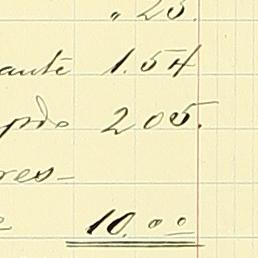 " 25.
ante 1.54
pdo 205.
res-
10.00